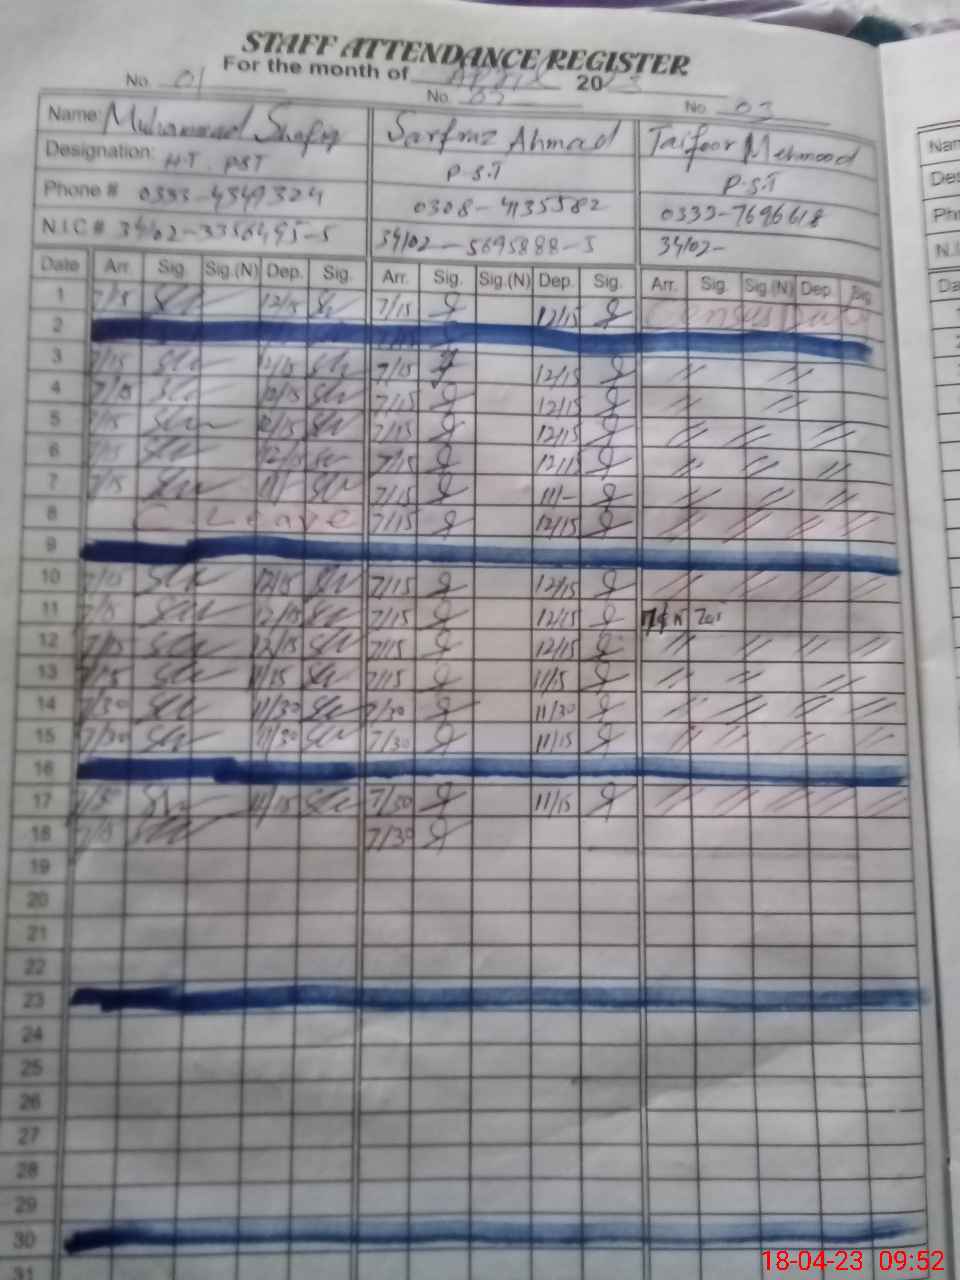 STAFF ATTENDANCE REGISTER
For the month of April 2023
No. 01 No. 02 No. 03
Name: Muhammad Shafiq Sarfraz Ahmad Taifoor Mehmood
Designation: H.T. PST P.S.T P.S.T
Phone # 0333-4549324 0308-4135582 0333-7696618
N.I.C # 34102-3356495-5 34102-5695888-5 34102-
Date Arr. Sig. Sig.(N) Dep. Sig. Arr. Sig. Sig.(N) Dep. Sig. Arr. Sig. Sig.(N) Dep. Sig.
1 7/15 12/15 7/15 12/15 Census Duty
2
3 7/15 12/15 7/15 12/15 // //
4 7/15 12/15 7/15 12/15 // //
5 7/15 12/15 7/15 12/15 // // //
6 7/15 12/15 7/15 12/15 // // //
7 7/15 11/- 7/15 11/- // // //
8 C. Leave 7/15 12/15 // // // // //
9
10 7/15 12/15 7/15 12/15 // // // // //
11 7/15 12/15 7/15 12/15
12 7/15 12/15 7/15 12/15 // // // // //
13 7/15 11/15 7/15 11/15 // // // //
14 7/30 11/30 7/30 11/30 // // // // //
15 7/30 11/30 7/30 11/15 // // // // //
16
17 7/30 11/15 7/30 11/15 // // // // //
18 7/30
19
20
21
22
23
24
25
26
27
28
29
30
31
Nam
Des
Pho
N.I.
Da
18-04-23 09:52